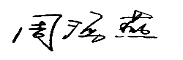 周海燕